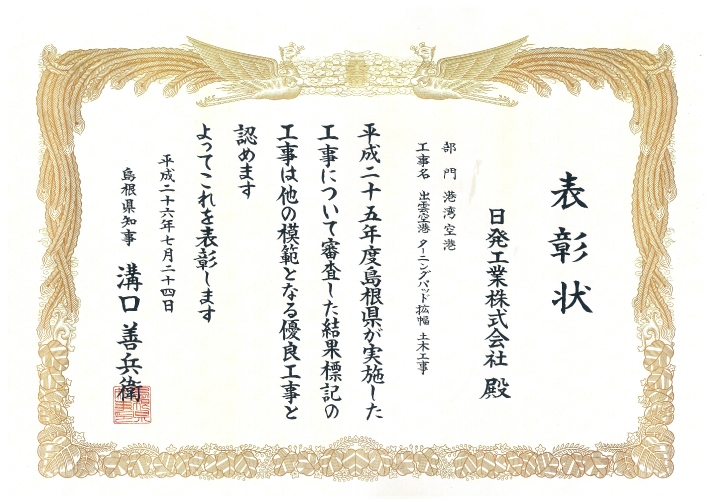 表彰状
日発工業株式会社 殿
部門 港湾空港
工事名 出雲空港 ターニングパッド拡幅 土木工事
平成二十五年度島根県が実施した
工事について審査した結果標記の
工事は他の模範となる優良工事と
認めます
よってこれを表彰します
平成二十六年七月二十四日
島根県知事 溝口善兵衛